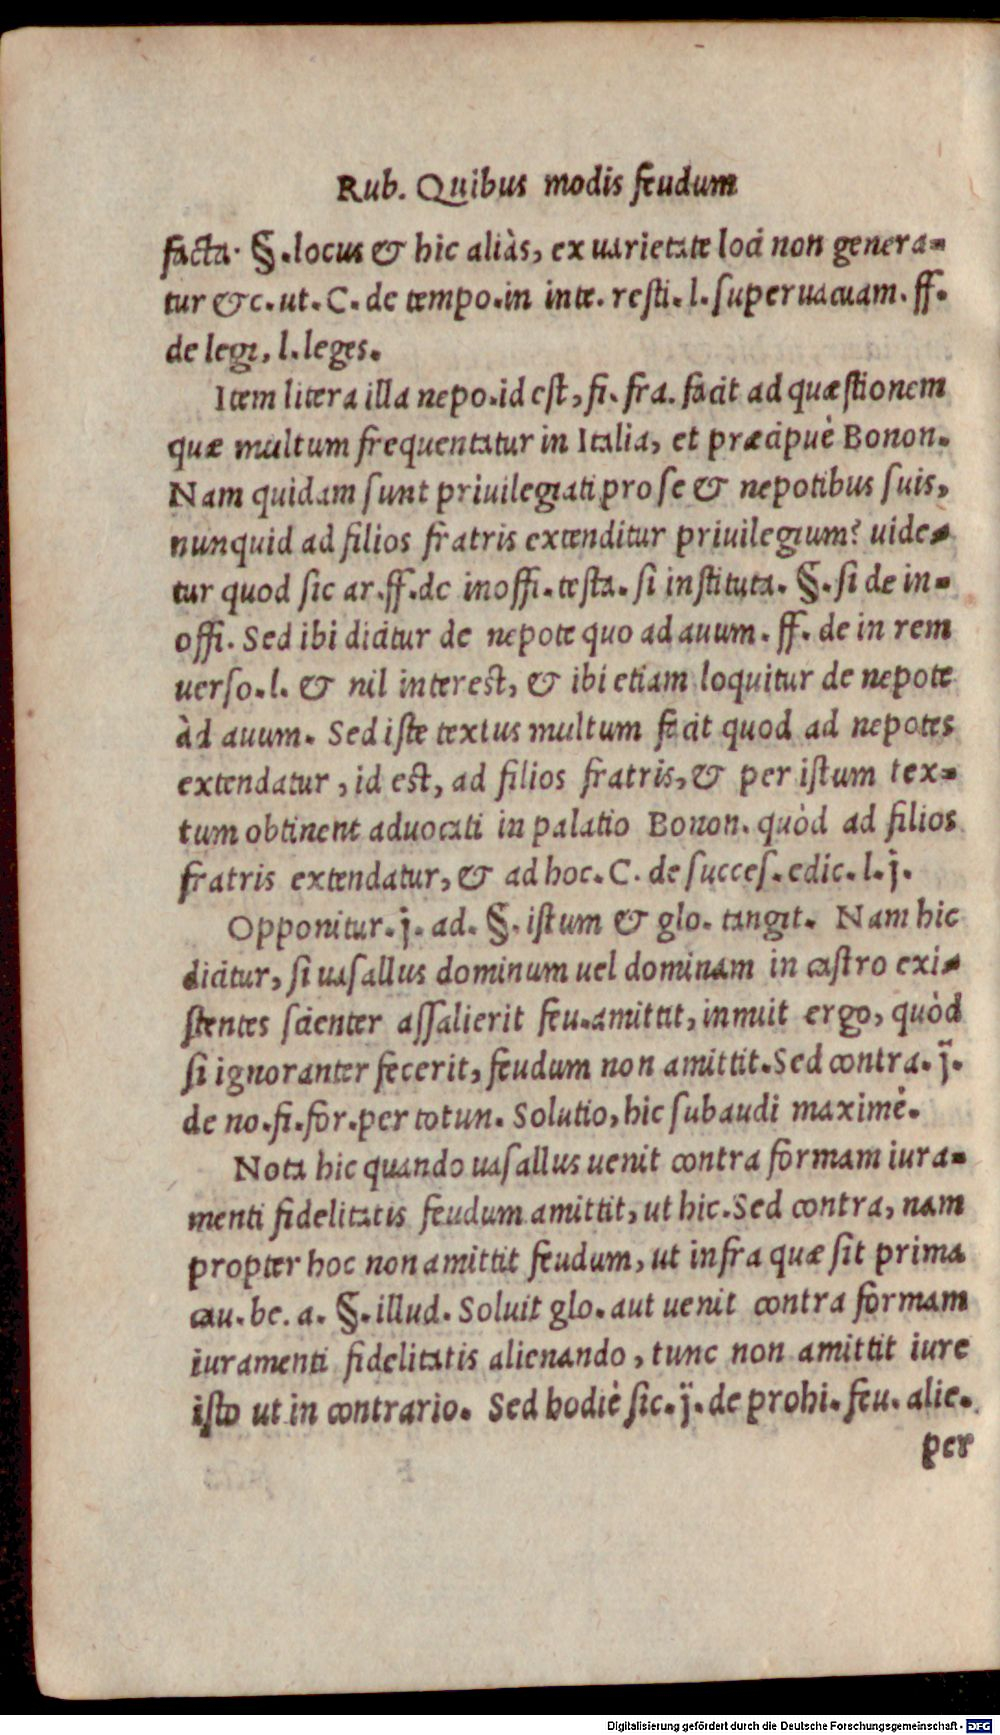 Rub. Quibus modis feudum
facta. §. locus & hic aliàs, ex uarietate loci non genera-
tur &c. ut. C. de tempo. in inte. resti. l. superuacuam. ff.
de legi, l. leges.
Item litera illa nepo. id est, fi. fra. facit ad quæstionem
quæ multum frequentatur in Italia, et præcipuè Bonon.
Nam quidam sunt priuilegiati pro se & nepotibus suis,
nunquid ad filios fratris extenditur priuilegium? uide-
tur quod sic ar. ff. de inoffi. testa. si instituta. §. si de in-
offi. Sed ibi dicitur de nepote quo ad auum. ff. de in rem
uerso. l. & nil interest, & ibi etiam loquitur de nepote
àd auum. Sed iste textus multum facit quod ad nepotes
extendatur, id est, ad filios fratris, & per istum tex-
tum obtinent aduocati in palatio Bonon. quòd ad filios
fratris extendatur, & ad hoc. C. de succes. edic. l. j.
Opponitur. j. ad. §. istum & glo. tangit. Nam hic
dicitur, si uasallus dominum uel dominam in castro exi-
stentes scienter assalierit feu. amittit, innuit ergo, quòd
si ignoranter fecerit, feudum non amittit. Sed contra. j.
de no. fi. for. per totun. Solutio, hic subaudi maximè.
Nota hic quando uasallus uenit contra formam iura-
menti fidelitatis feudum amittit, ut hic. Sed contra, nam
propter hoc non amittit feudum, ut infra quæ sit prima
cau. be. a. §. illud. Soluit glo. aut uenit contra formam
iuramenti fidelitatis alienando, tunc non amittit iure
isto ut in contrario. Sed hodiè sic. j. de prohi. feu. alie.
per
Digitalisierung gefördert durch die Deutsche Forschungsgemeinschaft - DFG